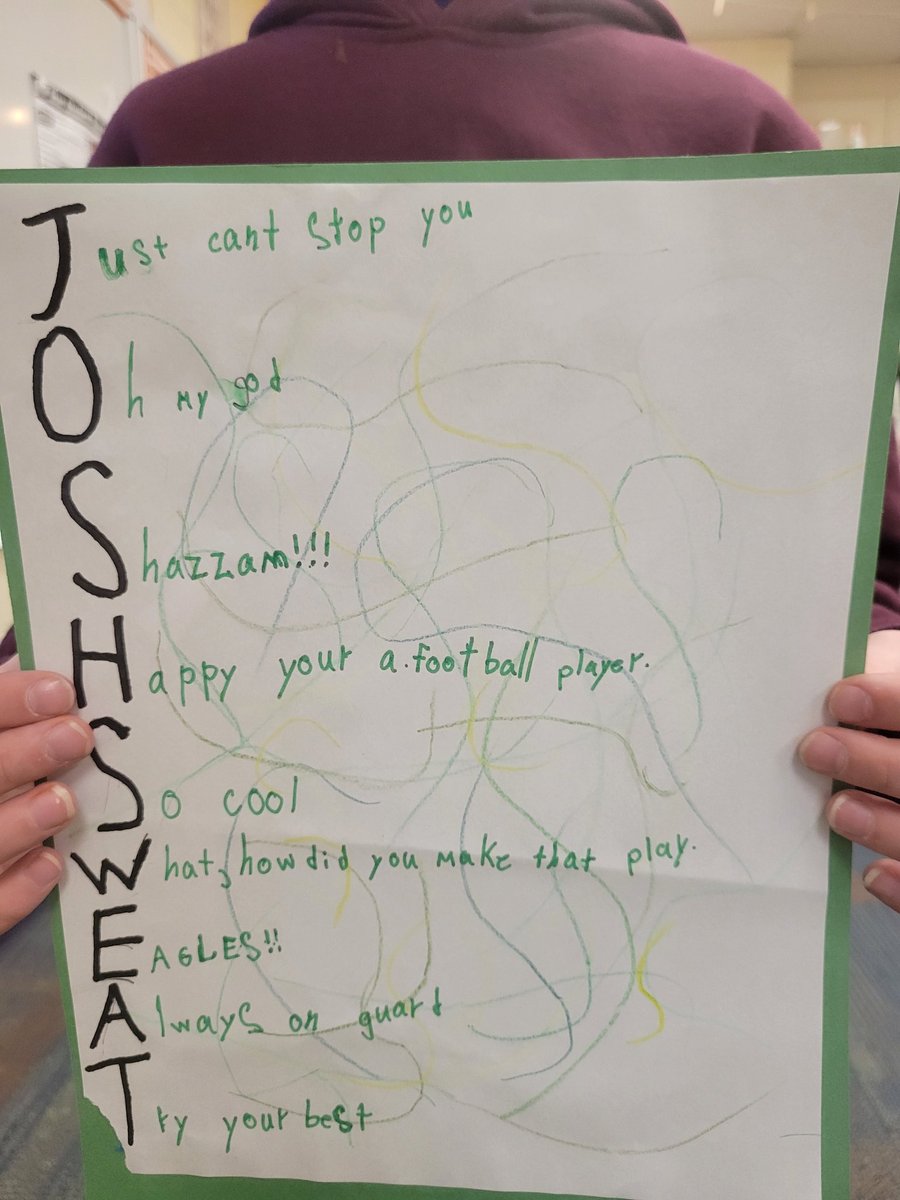 Just cant stop you
Oh my god
Shazzam!!!
Happy your a football player.
So cool
What, how did you make that play.
EAGLES!!
Always on guard
Try your best